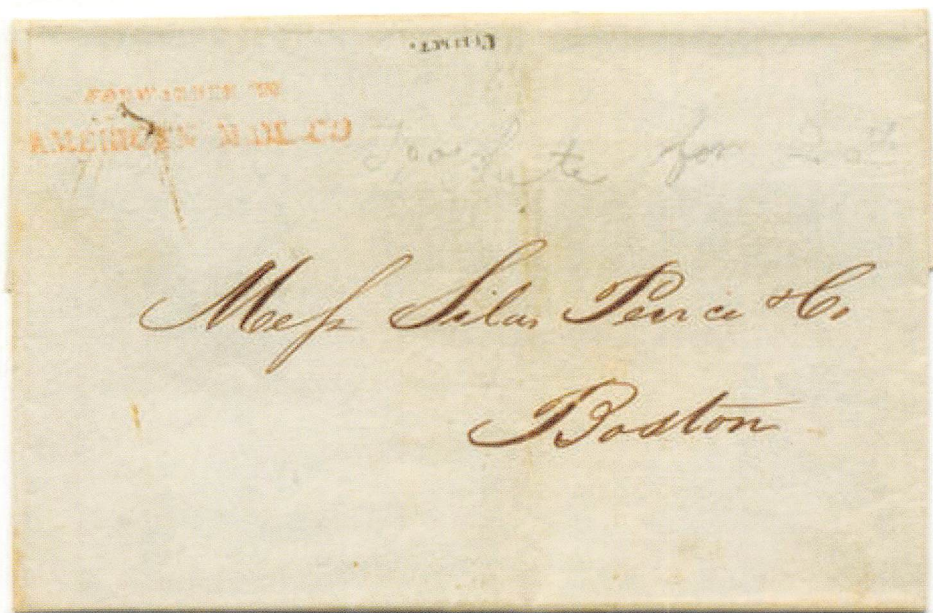 COLLECT.
FORWARDED BY
AMERICAN MAIL CO
Too late for 25th
Mess Silas Peirce & Co
Boston